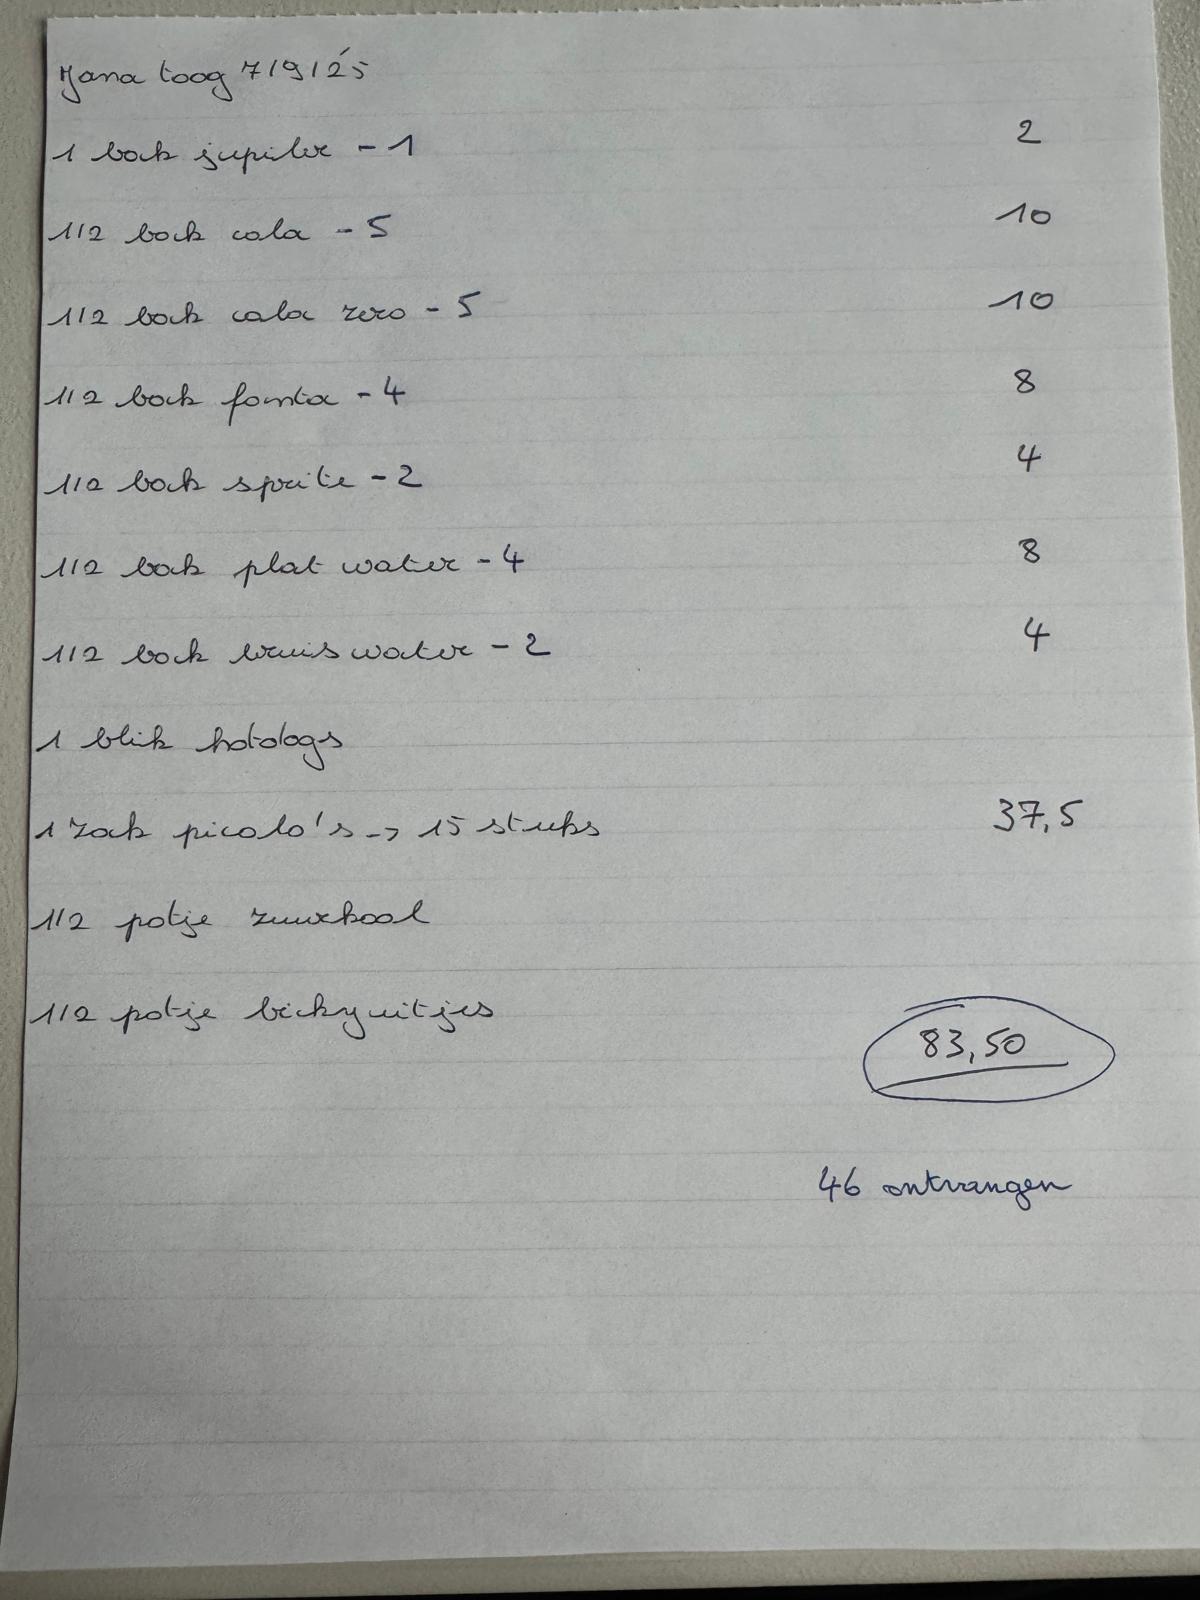 Yana toog 7/9/25
1 bak jupiler - 1 2
1/2 bak cola - 5 10
1/2 bak cola zero - 5 10
1/2 bak fanta - 4 8
1/2 bak sprite - 2 4
1/2 bak plat water - 4 8
1/2 bak bruiswater - 2 4
1 blik hotdogs
1 zak picolo's -> 15 stuks 37,5
1/2 potje zuurkool
1/2 potje bickyuitjes
83,50
46 ontvangen